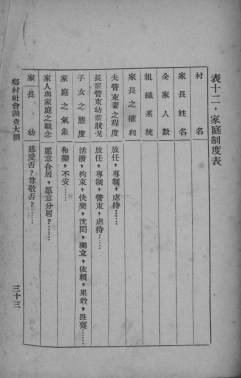 表十二，家庭制度表
村名
家長姓名
全家人數
組織系統
家長之權利
夫管束妻之程度　放任，專制，虐待……
長輩管束幼輩狀況　放任，專制，管束，虐待……
子女之態度　活潑，拘束，快樂，沈悶，獨立，依賴，果敢，畏葸……
家庭之氣象　和樂，不安……
家人與家庭之觀念　願意合居，願意分居？……
家長　幼　慈愛否？尊敬否？……
鄉村社會調查大綱
三十三